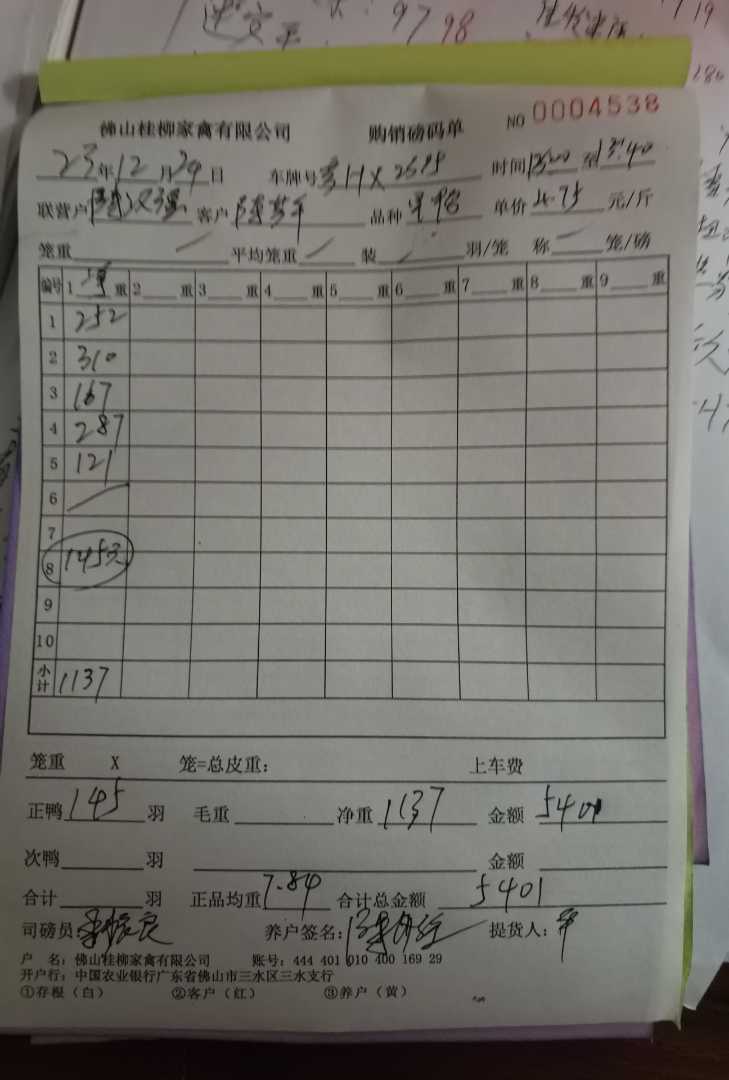 9798
佛山桂柳家禽有限公司 购销磅码单 NO 0004538
23年12月29日 车牌号 时间 至13:40
联营户 客户 品种 单价4.75元/斤
笼重 平均笼重 装 羽/笼 称 笼/磅
编号 1 重 2 重 3 重 4 重 5 重 6 重 7 重 8 重 9 重
1 252
2 310
3 167
4 287
5 121
6
7
8 145只
9
10
小计 1137
笼重 X 笼=总皮重: 上车费
正鸭145羽 毛重 净重1137 金额5401
次鸭 羽 金额
合计 羽 正品均重7.84 合计总金额5401
司磅员 养户签名: 提货人:
户 名:佛山桂柳家禽有限公司 账号:444 401 010 400 169 29
开户行:中国农业银行广东省佛山市三水区三水支行
①存根(白) ②客户(红) ③养户(黄)